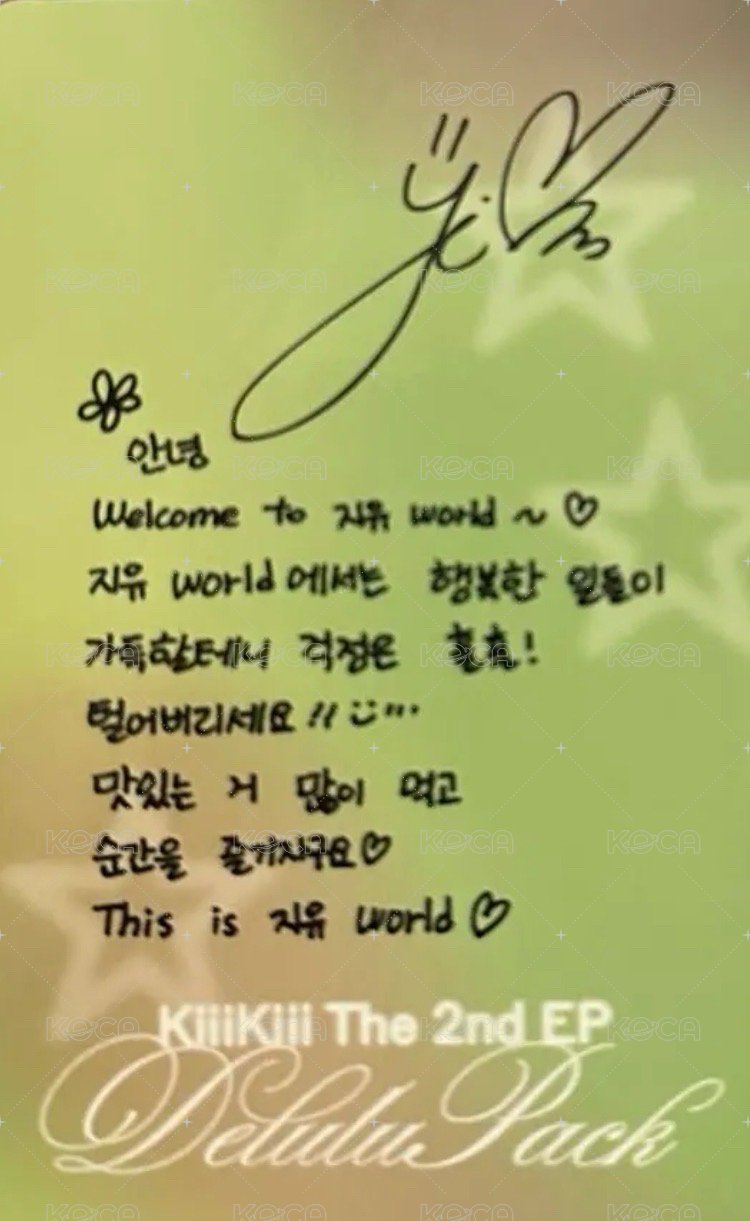 안녕
Welcome to 지유 world ~ ♡
지유 world 에서는 행복한 일들이
가득할테니 걱정은 훌훌!
털어버리세요!! 
맛있는 거 많이 먹고
순간을 즐기자구요♡
This is 지유 world ♡
KiiiKiii The 2nd EP
Delulu Pack
KOCA